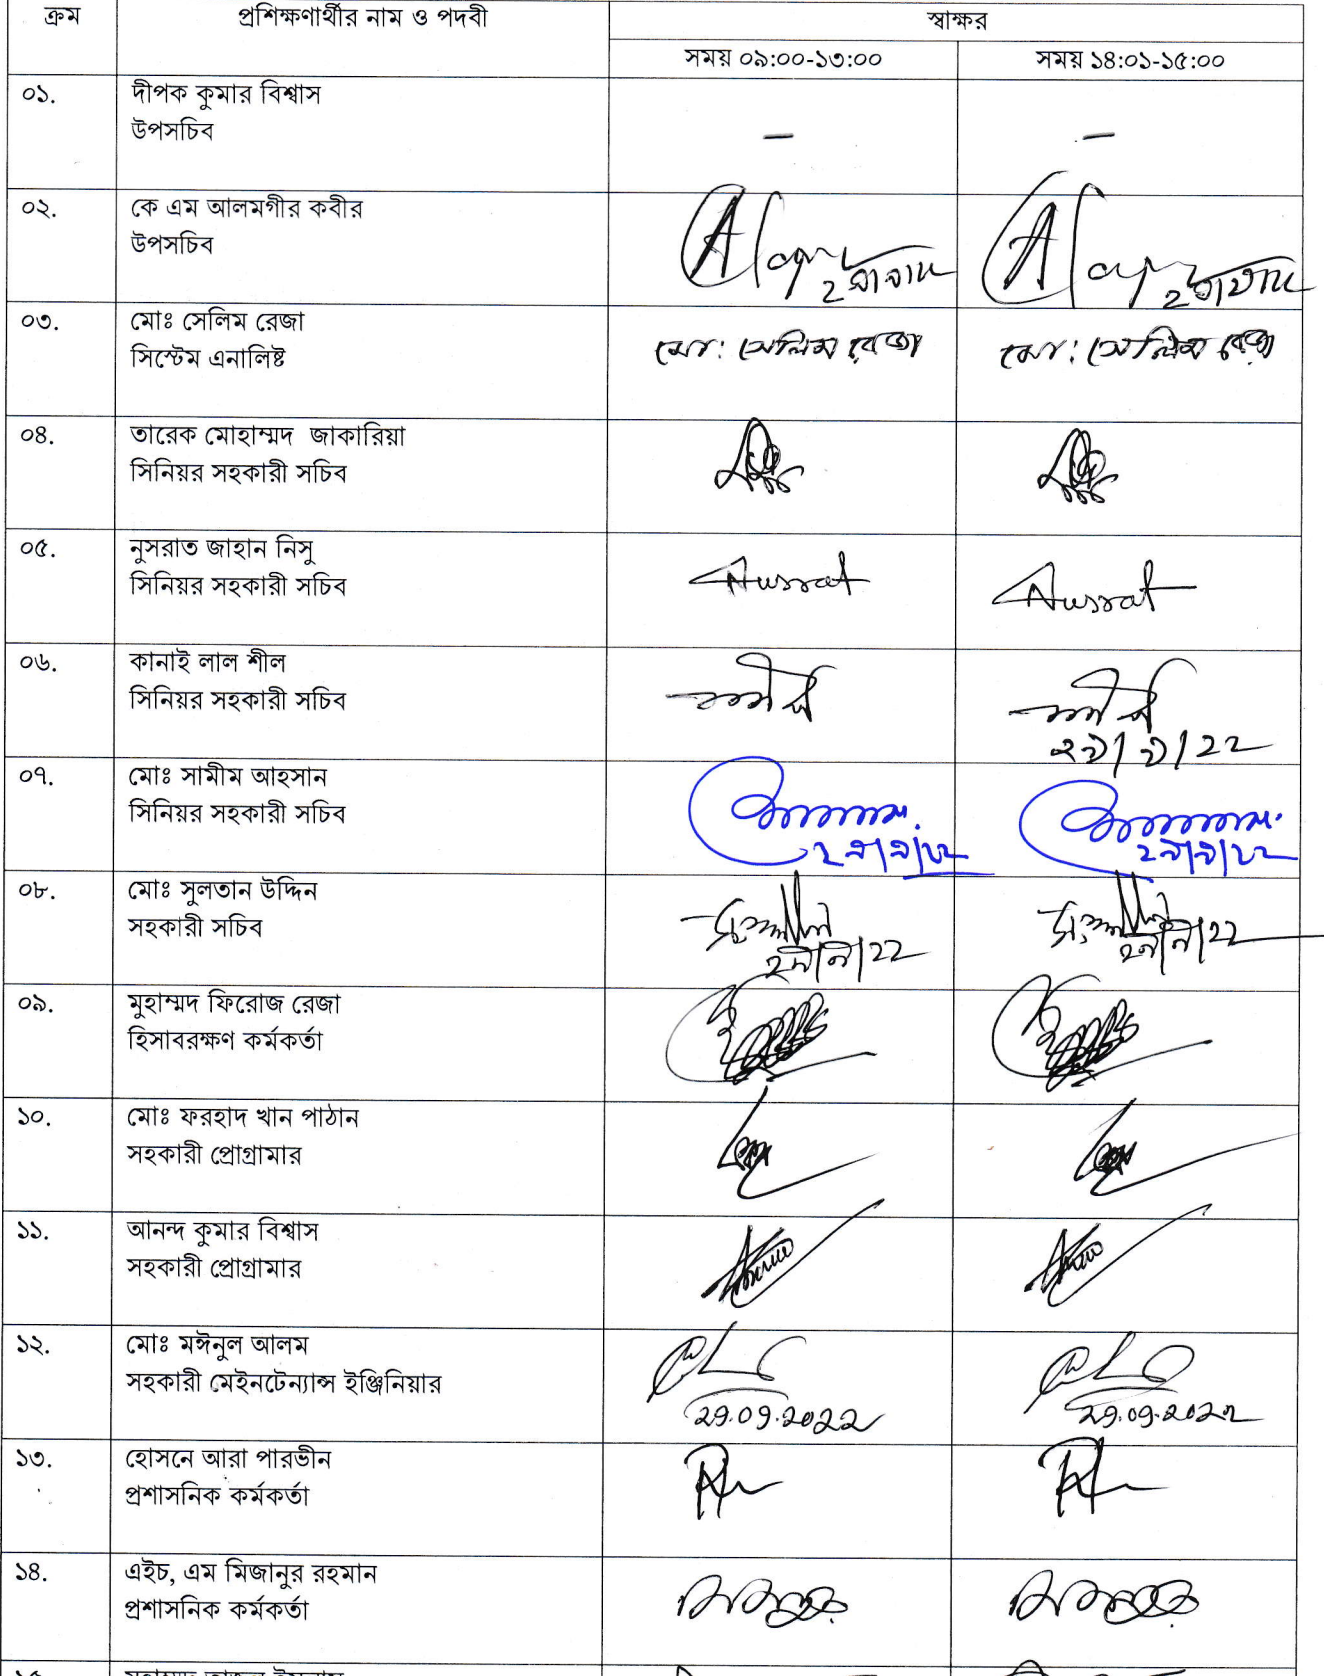 ক্রম প্রশিক্ষণার্থীর নাম ও পদবী স্বাক্ষর
সময় ০৯:০০-১৩:০০ সময় ১৪:০১-১৫:০০
০১. দীপক কুমার বিশ্বাস
উপসচিব
— —
০২. কে এম আলমগীর কবীর
উপসচিব
০৩. মোঃ সেলিম রেজা
সিস্টেম এনালিষ্ট
মো: সেলিম রেজা মো: সেলিম রেজা
০৪. তারেক মোহাম্মদ জাকারিয়া
সিনিয়র সহকারী সচিব
০৫. নুসরাত জাহান নিসু
সিনিয়র সহকারী সচিব
Nusrat Nusrat
০৬. কানাই লাল শীল
সিনিয়র সহকারী সচিব
২৯/৯/২২
০৭. মোঃ সামীম আহসান
সিনিয়র সহকারী সচিব
২৯/৯/২২ ২৯/৯/২২
০৮. মোঃ সুলতান উদ্দিন
সহকারী সচিব
২৯/৯/২২ ২৯/৯/২২
০৯. মুহাম্মদ ফিরোজ রেজা
হিসাবরক্ষণ কর্মকর্তা
১০. মোঃ ফরহাদ খান পাঠান
সহকারী প্রোগ্রামার
১১. আনন্দ কুমার বিশ্বাস
সহকারী প্রোগ্রামার
১২. মোঃ মঈনুল আলম
সহকারী মেইনটেন্যান্স ইঞ্জিনিয়ার
29.09.2022 29.09.2022
১৩. হোসনে আরা পারভীন
প্রশাসনিক কর্মকর্তা
১৪. এইচ, এম মিজানুর রহমান
প্রশাসনিক কর্মকর্তা